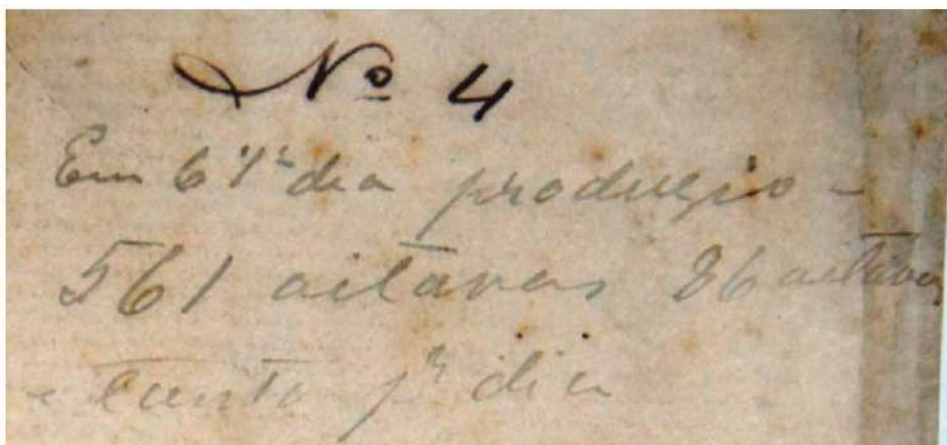 Nº 4
Em 6 1/2 dia produção -
561 oitavas 86 oitavas
e tanto pr dia